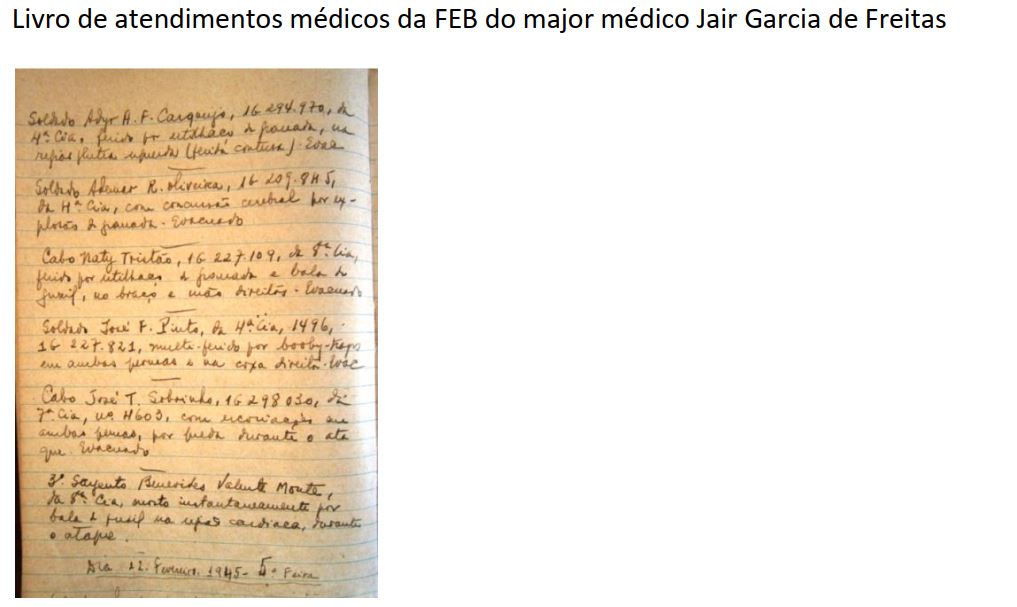 Livro de atendimentos médicos da FEB do major médico Jair Garcia de Freitas
Soldado Adyr A. F. 16 294.970, da
4ª Cia, ferido por estilhaço de granada, na
região glutea esquerda (ferida contusa). Evac
Soldado Ademar R. Oliveira, 16 209.845,
da 4ª Cia, com concussão cerebral por ex-
plosão de granada. Evacuado
Cabo Naty Tristão, 1G 227.109, da 8ª Cia,
ferido por estilhaço de granada e bala de
fuzil, no braço e mão direitos. Evacuado
Soldado José F. Pinto, da 4ª Cia, 1496,
1G 227.821, multi-ferido por booby-traps
em ambas pernas e na coxa direita. Evac
Cabo José T. Sobrinho, 1G 298 030, da
7ª Cia, nº 4603, com escoriações em
ambas pernas, por queda durante o ata
que. Evacuado
3º Sargento Benevides Valente Monte,
da 8ª Cia, morto instantaneamente por
bala de fuzil na região cardiaca, durante
o ataque.
Dia 22. Fevereiro. 1945 - 5ª Feira